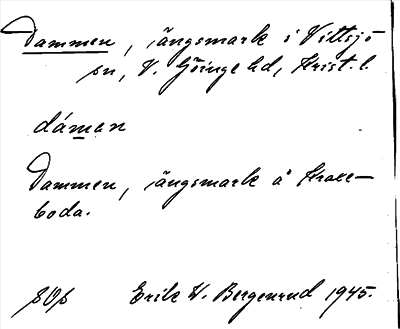 Dammen, ängsmark i Vittsjö
sn, V. Göinge hd, Krist. l.
dáman
Dammen, ängsmark å
boda.
Erik W. Bergenrud 1945.